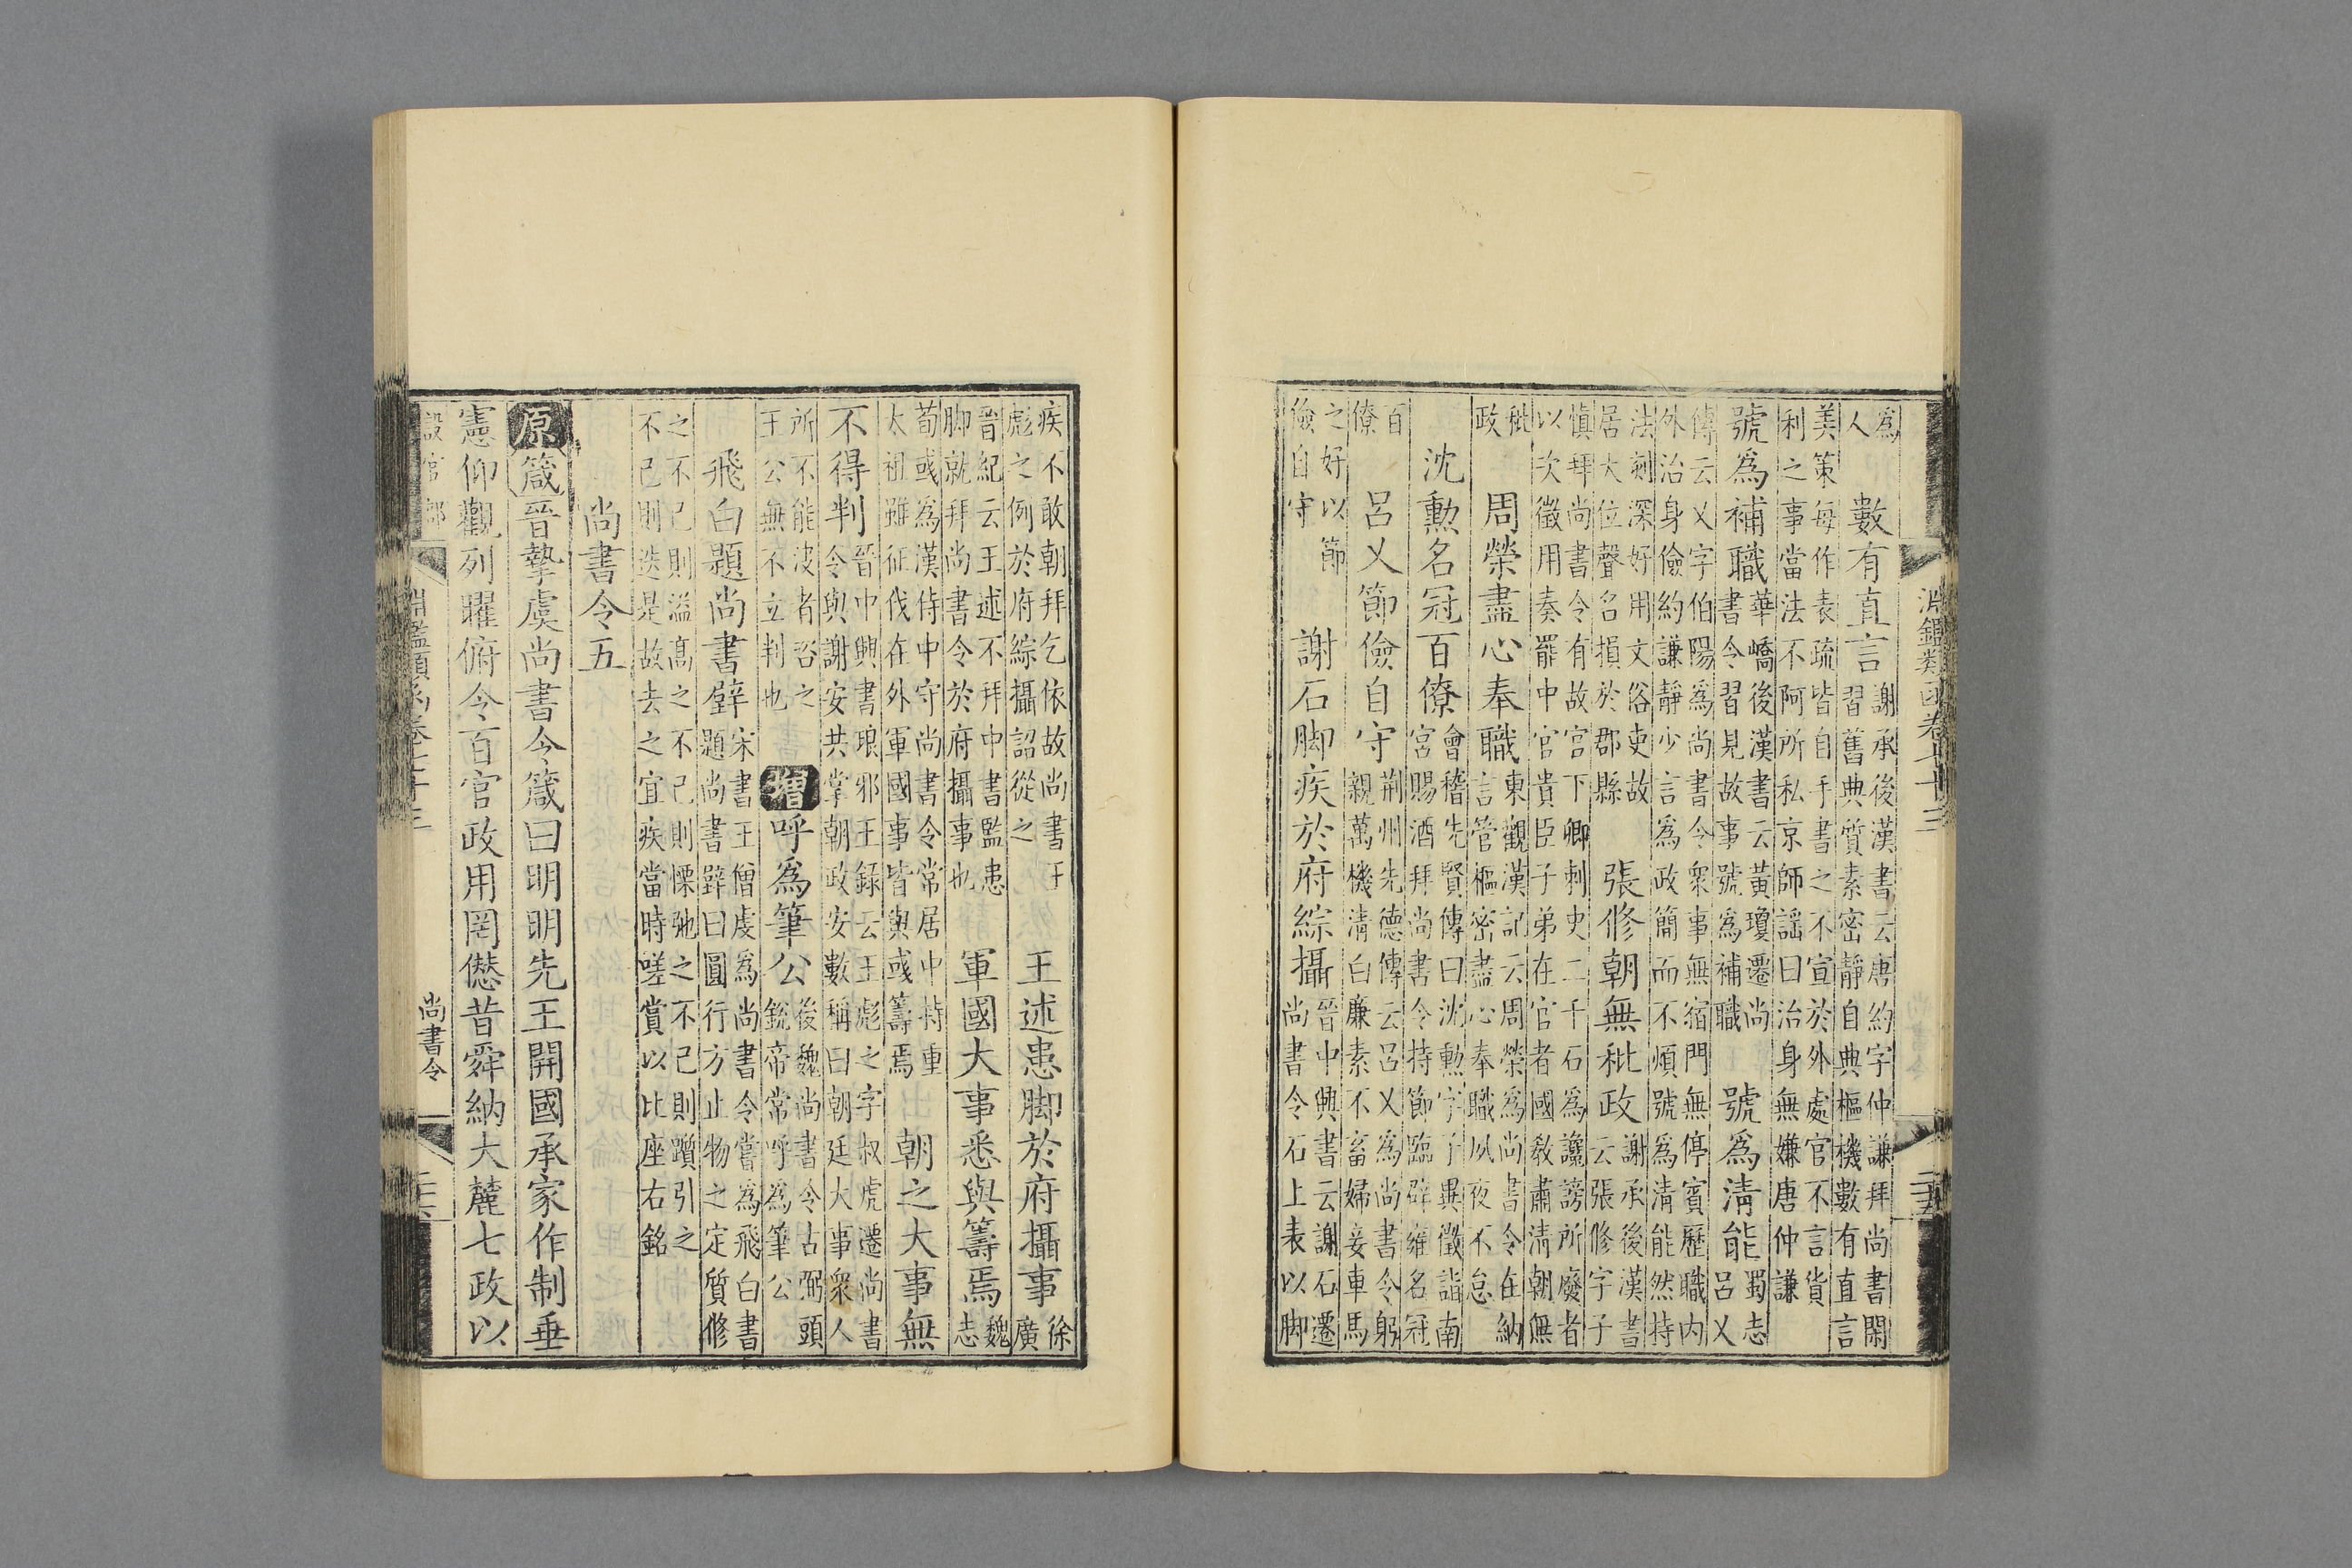 淵鑑類函卷七十三 二十五
為人數有直言謝承後漢書云唐約字仲謙拜尚書閑習舊典質素密靜自典樞機數有直言
美策每作表疏皆自手書之不宣於外處官不言貨利之事當法不阿所私京師謡曰治身無嫌唐仲謙
號為補職華嶠後漢書云黃瓊遷尚書令習見故事號為補職 號為清能蜀志呂乂
傳云乂字伯陽為尚書令衆事無宿門無停賓歷職内外治身儉約謙靜少言為政簡而不煩號為清能然持
法刻深好用文俗吏故居大位聲名損於郡縣 張修朝無秕政謝承後漢書云張修字子
慎拜尚書令有故官下卿刺史二千石為讒謗所廢者以次徵用奏罷中官貴臣子弟在官者國敎肅清朝無
秕政 周榮盡心奉職東觀漢記云周榮為尚書令在納言管樞密盡心奉職夙夜不怠
沈勲名冠百僚會稽先賢傳曰沈勲字子異徵詣南宮賜酒拜尚書令持節臨辟雍名冠
百僚 呂乂節儉自守荆州先德傳云呂乂為尚書令躬親萬機清白廉素不畜婦妾車馬
之好以節儉自守 謝石脚疾於府綜攝晉中興書云謝石遷尚書令石上表以脚
疾不敢朝拜乞依故尚書王彪之例於府綜攝詔從之 王述患脚於府攝事徐廣
晉紀云王述不拜中書監患脚就拜尚書令於府攝事也 軍國大事悉與籌焉魏志
荀或為漢侍中守尚書令常居中持重太祖雖征伐在外軍國事皆與或籌焉 朝之大事無
不得判晉中興書琅邪王錄云王彪之字叔虎遷尚書令與謝安共掌朝政安數稱曰朝廷大事衆人
所不能决者咨之王公無不立判也 增呼為筆公後魏尚書令古弼頭銳帝常呼為筆公
飛白題尚書壁宋書王僧虔為尚書令嘗為飛白書題尚書壁曰圓行方止物之定質修
之不已則溢高之不已則慄馳之不已則躓引之不已則迭是故去之宜疾當時嗟賞以比座右銘
尚書令五
原箴晉摯虞尚書令箴曰明明先王開國承家作制垂
憲仰觀列曜俯令百官政用罔僁昔舜納大麓七政以
設官部 淵鑑類函卷七十三 尚書令 二十六